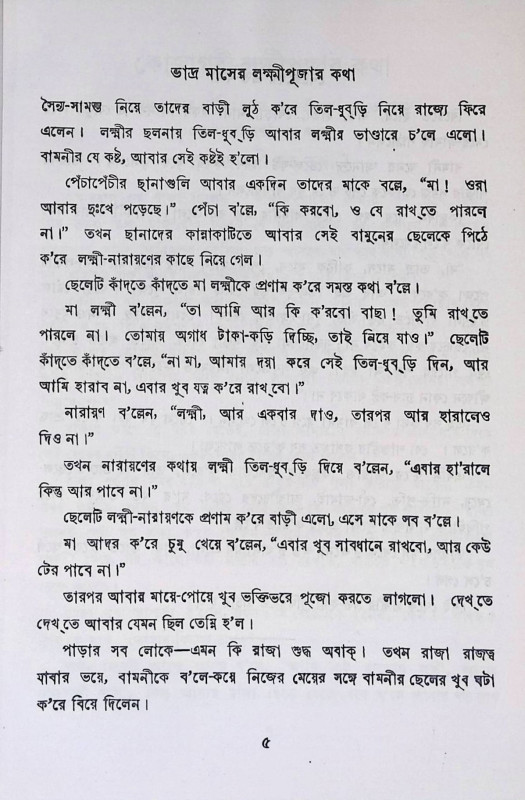 ভাদ্র মাসের লক্ষ্মীপূজার কথা
সৈন্য-সামন্ত নিয়ে তাদের বাড়ী লুঠ ক'রে তিল-ধুব্ড়ি নিয়ে রাজ্যে ফিরে
এলেন। লক্ষ্মীর ছলনায় তিল-ধুব্ড়ি আবার লক্ষ্মীর ভাণ্ডারে চ'লে এলো।
বামনীর যে কষ্ট, আবার সেই কষ্টই হ'লো।
পেঁচাপেঁচীর ছানাগুলি আবার একদিন তাদের মাকে ব'ল্লে, “মা! ওরা
আবার দুঃখে পড়েছে।” পেঁচা ব'ল্লে, “কি করবো, ও যে রাখ্‌তে পারলে
না।” তখন ছানাদের কান্নাকাটিতে আবার সেই বামুনের ছেলেকে পিঠে
ক'রে লক্ষ্মী-নারায়ণের কাছে নিয়ে গেল।
ছেলেটি কাঁদ্‌তে কাঁদ্‌তে মা লক্ষ্মীকে প্রণাম ক'রে সমস্ত কথা ব'ল্লে।
মা লক্ষ্মী ব'ল্লেন, “তা আমি আর কি ক'রবো বাছা! তুমি রাখ্‌তে
পারলে না। তোমার অগাধ টাকা-কড়ি দিচ্ছি, তাই নিয়ে যাও।” ছেলেটি
কাঁদ্‌তে কাঁদ্‌তে ব'ল্লে, “না মা, আমার দয়া করে সেই তিল-ধুব্ড়ি দিন, আর
আমি হারাব না, এবার খুব যত্ন ক'রে রাখ্‌বো।”
নারায়ণ ব'ল্লেন, “লক্ষ্মী, আর একবার দাও, তারপর আর হারালেও
দিও না।”
তখন নারায়ণের কথায় লক্ষ্মী তিল-ধুব্ড়ি দিয়ে ব'ল্লেন, “এবার হা'রালে
কিন্তু আর পাবে না।”
ছেলেটি লক্ষ্মী-নারায়ণকে প্রণাম ক'রে বাড়ী এলো, এসে মাকে সব ব'ল্লে।
মা আদর ক'রে চুমু খেয়ে ব'ল্লেন, “এবার খুব সাবধানে রাখবো, আর কেউ
টের পাবে না।”
তারপর আবার মায়ে-পোয়ে খুব ভক্তিভরে পূজো করতে লাগলো। দেখ্‌তে
দেখ্‌তে আবার যেমন ছিল তেম্নি হ'ল।
পাড়ার সব লোকে—এমন কি রাজা শুদ্ধ অবাক্। তখন রাজা রাজত্ব
যাবার ভয়ে, বামনীকে ব'লে-কয়ে নিজের মেয়ের সঙ্গে বামনীর ছেলের খুব ঘটা
ক'রে বিয়ে দিলেন।
৫